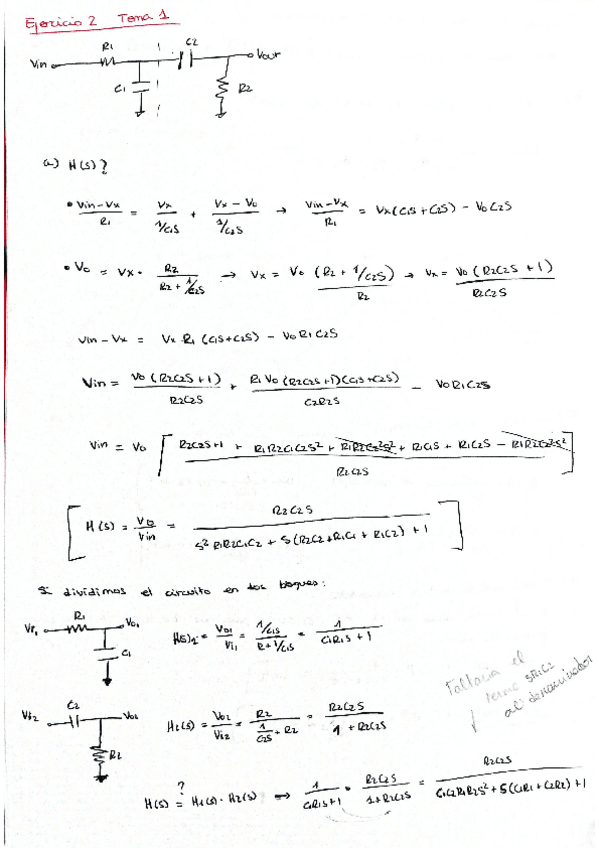 Ejercicio 2 Tema 1
R1 C2
Vin Vout
C1 R2
a) H(s)?
• Vin-Vx / R1 = Vx / 1/C1S + Vx - Vo / 1/C2S → Vin-Vx / R1 = Vx(C1S + C2S) - VoC2S
• Vo = Vx · R2 / R2 + 1/C2S → Vx = Vo (R2 + 1/C2S) / R2 → Vx = Vo (R2C2S + 1) / R2C2S
Vin - Vx = Vx R1 (C1S+C2S) - VoR1C2S
Vin = Vo (R2C2S+1) / R2C2S + R1Vo(R2C2S+1)(C1S+C2S) / C2R2S - VoR1C2S
Vin = Vo [ R2C2S+1 + R1R2C1C2S² + R1R2C2²S² + R1C1S + R1C2S - R1R2C2²S² / R2C2S ]
[ H(s) = Vo / Vin = R2C2S / S²R1R2C1C2 + S(R2C2+R1C1+R1C2) + 1 ]
Si dividimos el circuito en dos boques:
Vi1 R1 Vo1
C1
H(s)1 = Vo1 / Vi1 = 1/C1S / R+1/C1S = 1 / C1R1S + 1
Faltaria el
termo SR1C2
al denominador
Vi2 C2 Vo2
R2
H2(s) = Vo2 / Vi2 = R2 / 1/C2S + R2 = R2C2S / 1 + R2C2S
?
H(s) = H1(s) · H2(s) → 1 / C1R1S+1 · R2C2S / 1+R2C2S = R2C2S / C1C2R1R2S² + S(C1R1 + C2R2) + 1